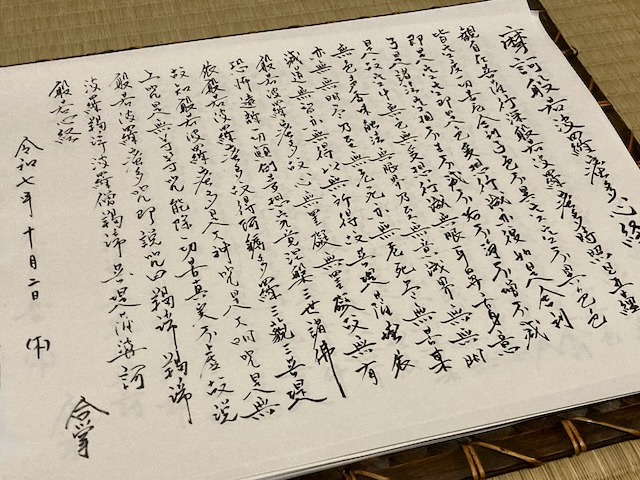 摩訶般若波羅蜜多心経
観自在菩薩行深般若波羅蜜多時照見五蘊
皆空度一切苦厄舎利子色不異空空不異色色
即是空空即是色受想行識亦復如是舎利
子是諸法空相不生不滅不垢不浄不増不減
是故空中無色無受想行識無眼耳鼻舌身意
無色声香味触法無眼界乃至無意識界無無明
亦無無明尽乃至無老死亦無老死尽無苦集
滅道無智亦無得以無所得故菩提薩埵依
般若波羅蜜多故心無罣礙無罣礙故無有
恐怖遠離一切顛倒夢想究竟涅槃三世諸佛
依般若波羅蜜多故得阿耨多羅三藐三菩提
故知般若波羅蜜多是大神呪是大明呪是無
上呪是無等等呪能除一切苦真実不虚故説
般若波羅蜜多呪即説呪曰羯諦羯諦
波羅羯諦波羅僧羯諦菩提薩婆訶
般若心経
令和七年十月二日(木)
合掌